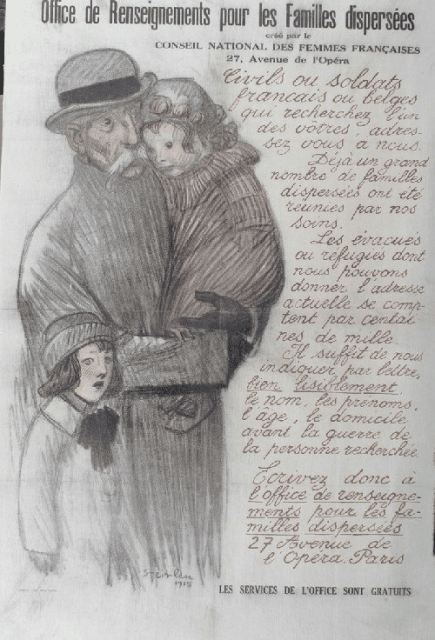 Office de Renseignements pour les Familles dispersées
créé par le
CONSEIL NATIONAL DES FEMMES FRANÇAISES
27, Avenue de l'Opéra
Civils ou soldats
français ou belges
qui recherchez l'un
des vôtres, adres-
sez vous à nous.
Déjà un grand
nombre de familles
dispersées ont été
réunies par nos
soins.
Les évacués
ou réfugiés dont
nous pouvons
donner l'adresse
actuelle se comp-
tent par centai-
nes de mille
Il suffit de nous
indiquer, par lettre,
bien lisiblement,
le nom, les prénoms,
l'âge, le domicile
avant la guerre de
la personne recherchée
Ecrivez donc à
l'office de renseigne-
ments pour les fa-
milles dispersées
27 Avenue de
l'Opéra. Paris
Steinlen
1915
LES SERVICES DE L'OFFICE SONT GRATUITS